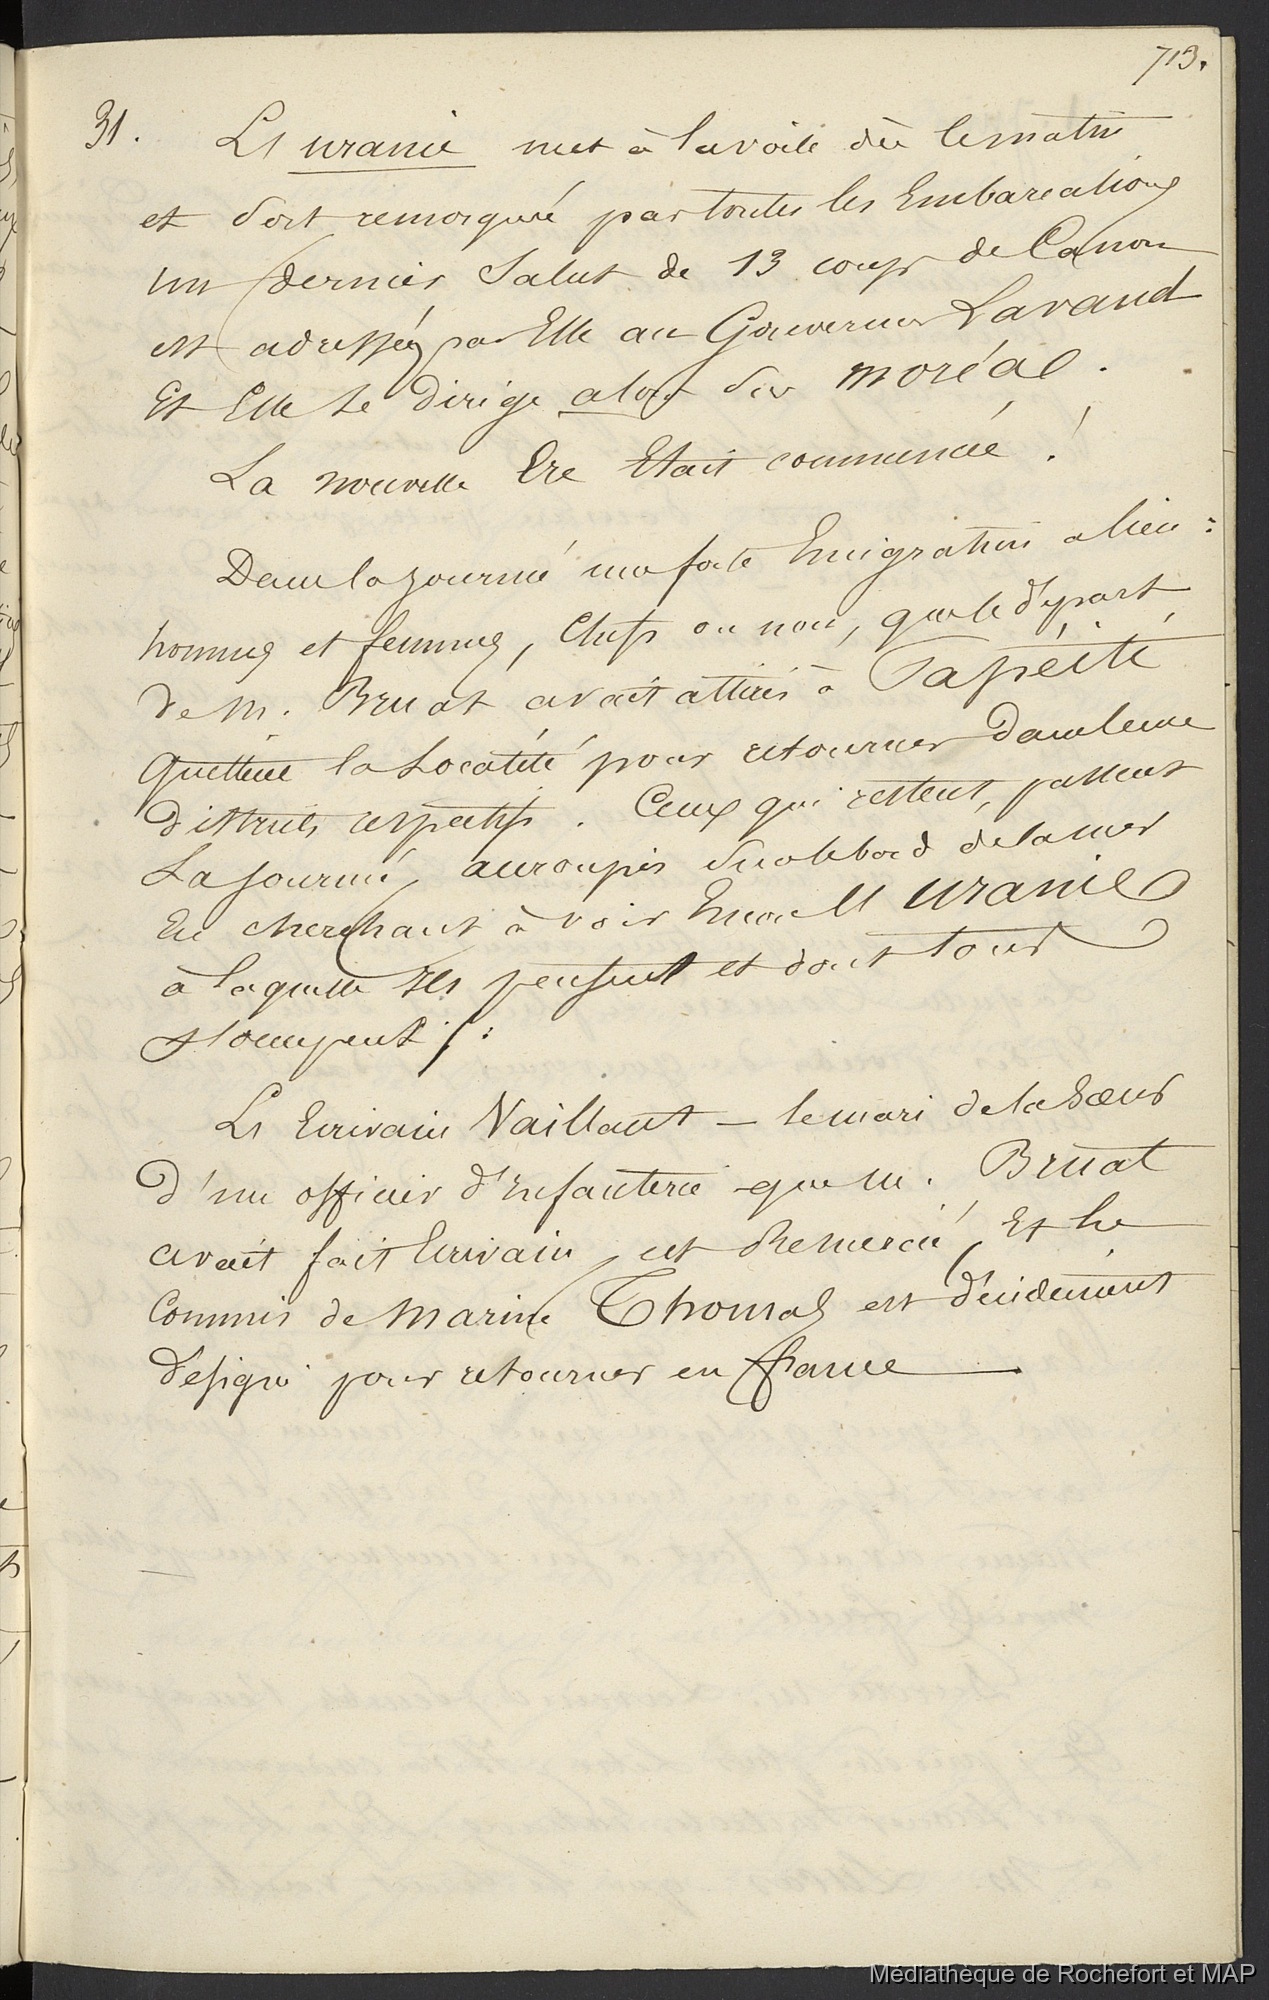 713.
31. L'Uranie met à la voile dès le matin
et sort remorquée par toutes les Embarcations
un dernier Salut de 13 coups de Canon
est adressée par Elle au Gouverneur Lavaud
Et Elle se dirige alors sur Moréa.
La nouvelle Ere Etait commencée !
Dans la journée une forte Emigration a lieu :
hommes et femmes, Chefs ou non, que le départ
de M. Bruat avait attirés à Papéïté
quittent la Localité pour retourner dans leurs
districts respectifs. Ceux qui restent, passent
La journée, accroupis sur le bord de la mer
En cherchant à voir Encore l'Uranie
à laquelle ils pensent et dont tous
s'occupent ! :
L'Ecrivain Vaillant — le mari de la Soeur
d'un officier d'Infanterie que M. Bruat
avait fait Ecrivain, est Remercié, Et le
Commis de Marine Thomas est décidément
désigné pour retourner en france —
Médiathèque de Rochefort et MAP